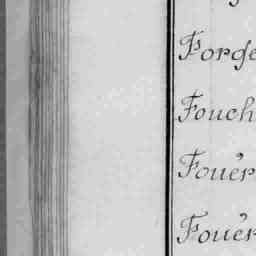 Forge
Fouch
Fouer
Fouer